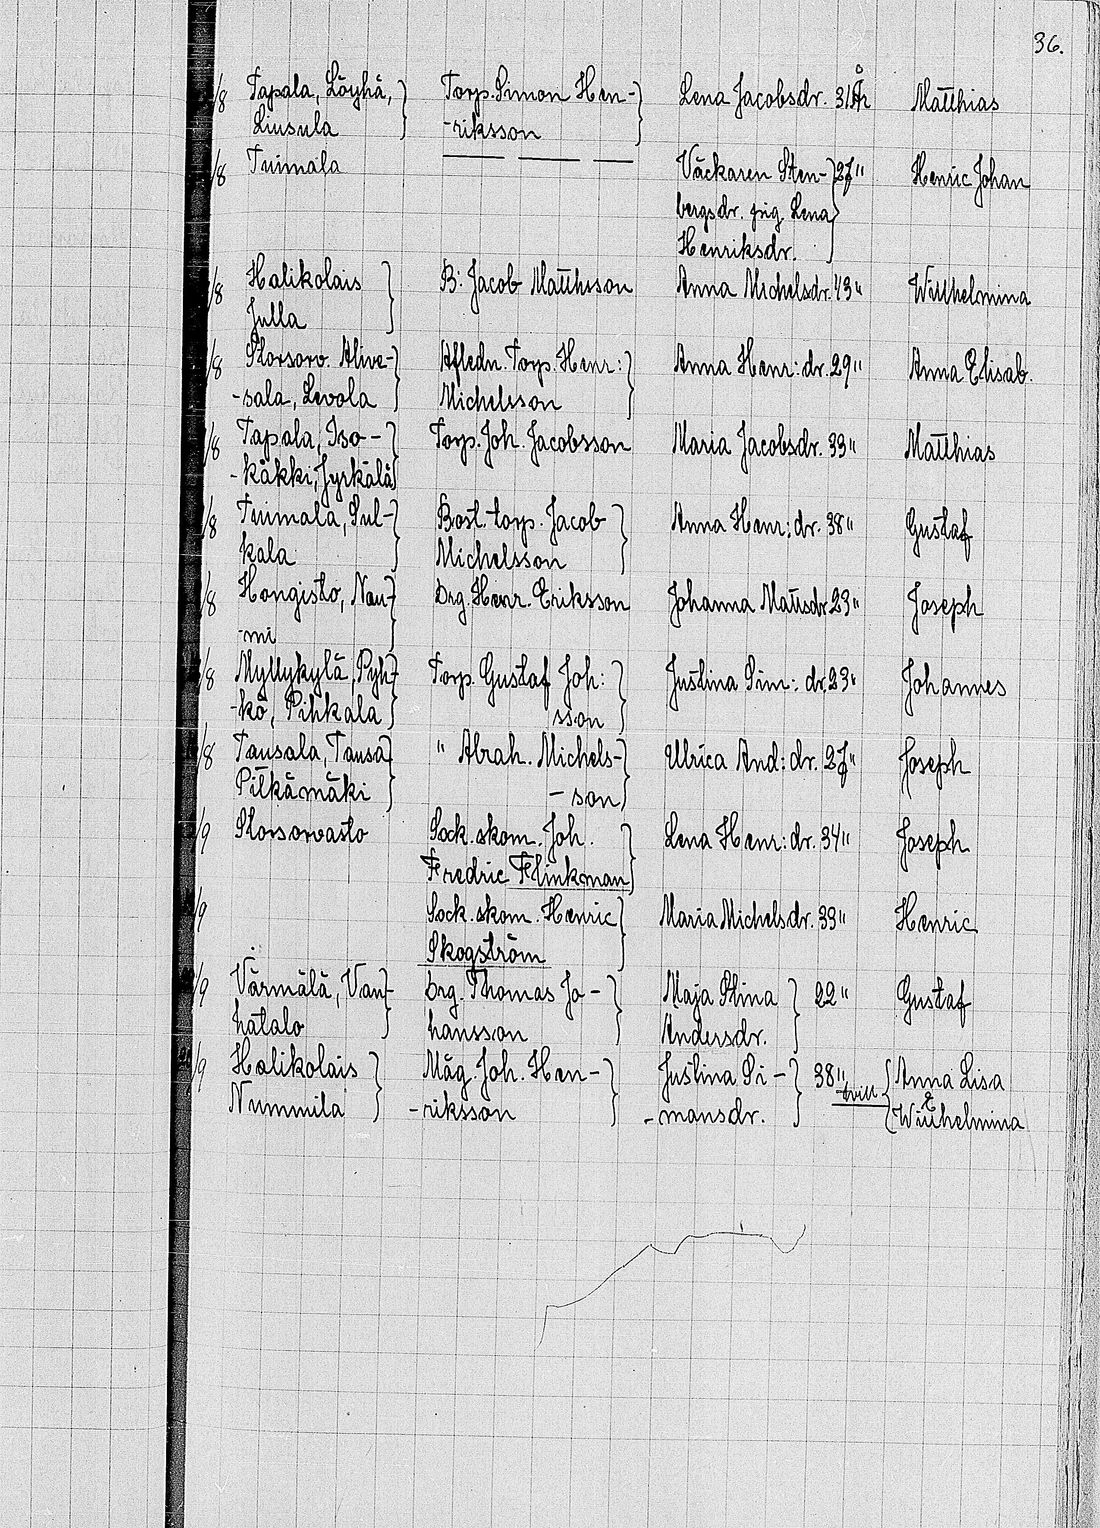 36.
/8 Tapala, Löyhä, Torp. Simon Hen- Lena Jacobsdr. 31 År Matthias
Liusula -riksson
/8 Tuimala — — — Väckaren Sten- 27 " Henric Johan
bergsdr. pig. Lena
Henriksdr.
/8 Halikolais B: Jacob Matthsson Anna Michelsdr. 43 " Willhelmina
Julla
/8 Storsorv. Alive- Afledn. Torp. Henr: Anna Henr: dr. 29 " Anna Elisab.
-sala, Levola Michelsson
/8 Tapala, Iso- Torp. Joh. Jacobsson Maria Jacobsdr. 33 " Matthias
-käkki, Jyrkälä
/8 Tuimala, Sul- Bost. torp. Jacob Anna Henr: dr. 38 " Gustaf
kala Michelsson
/8 Hongisto, Nau- Drg. Henr. Eriksson Johanna Mattsdr. 23 " Joseph
-mi
/8 Myllykylä, Pyh- Torp. Gustaf Joh: Justina Sim: dr. 23 " Johannes
-kö, Pihkala sson
/8 Tausala, Tausa " Abrah. Michels- Ulrica And: dr. 27 " Joseph
Pilkämäki -son
/9 Storsorvasto Sock. skom. Joh. Lena Henr: dr. 34 " Joseph
Fredric Flinkman
/9 Sock. skom. Henric Maria Michelsdr. 33 " Henric
Skogström
/9 Värmälä, Van- Drg. Thomas Jo- Maja Stina 22 " Gustaf
hatalo hansson Andersdr.
/9 Halikolais Måg. Joh. Hen- Justina Si- 38 " tvill Anna Lisa
Nummila -riksson -mansdr. & Willhelmina